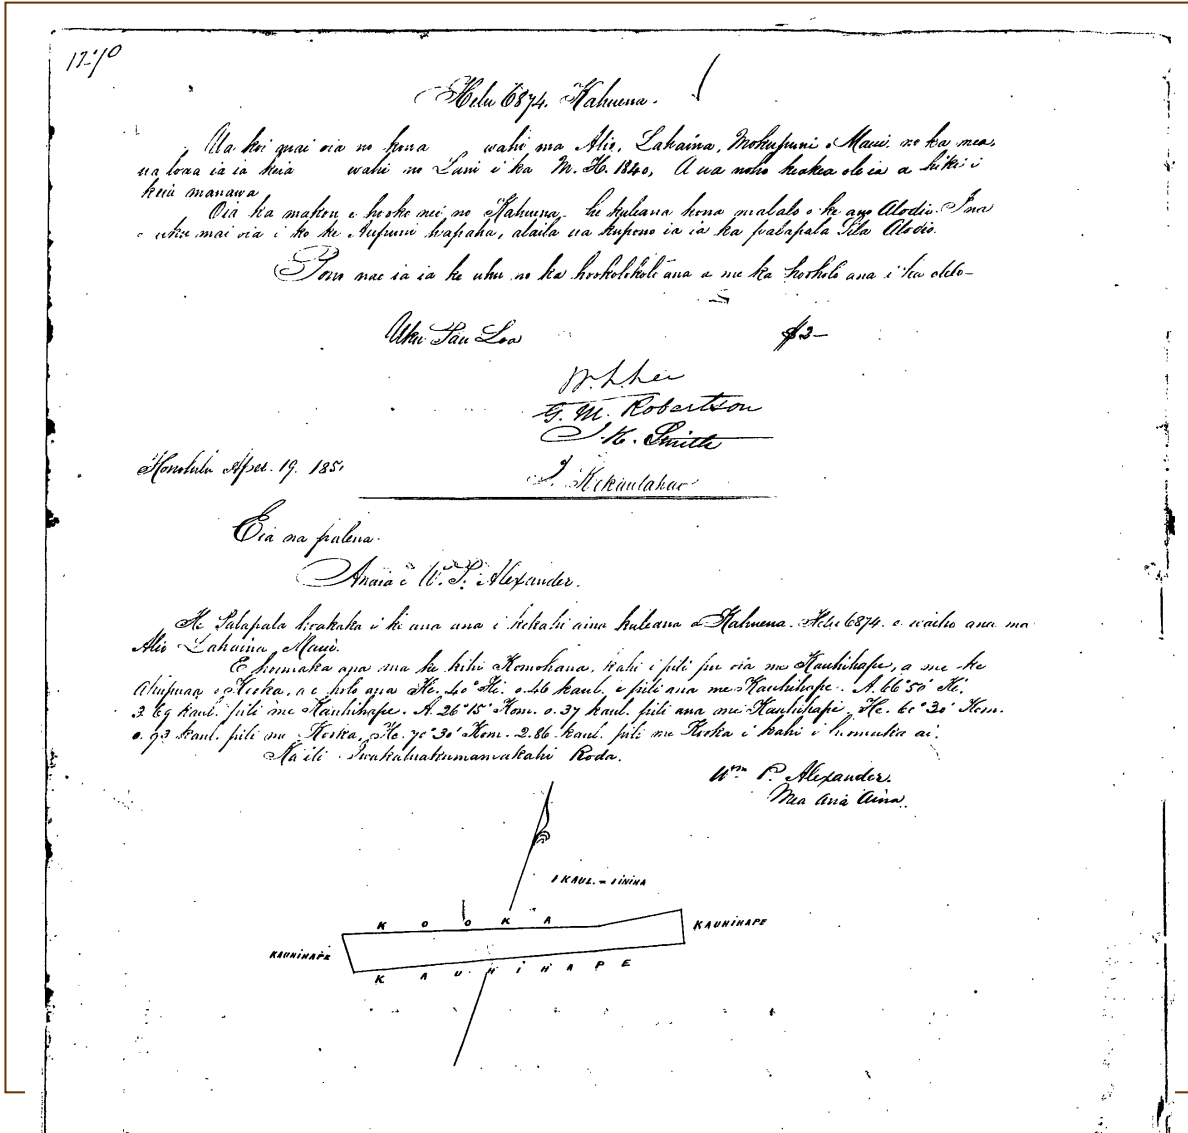 Helu 6874. Kahuena.
Ua koi quai oia no kona wahi ma Alio, Lahaina, Mokupuni o Maui. no ka mea,
ua loaa ia ia keia wahi no Luni i ka M. H. 1840, A ua noho keakea ole ia a hiki i
keia manawa
Oia ka makou e hooko nei no Kahuena, he kuleana kona malalo o ke ano Alodio. Ina
e uku mai oia i ko ke Aupuni hapaha, alaila ua kupono ia ia ka palapala Sila Alodio.
Pono nae ia ia ke uku no ka hookolokolo ana a me ka hookolo ana i ka olelo-
Uku Pau Loa $3-
G. M. Robertson
J. K. Smith
J. Kekaulahao
Honolulu Aper. 19. 185
Eia na palena.
Anaia e W. P. Alexander.
He Palapala hoakaka i ke ana ana i kekahi aina kuleana o Kahuena. Helu 6874. e waiho ana ma
Alio Lahaina Maui.
E hoomaka ana ma ke kihi Komohana, kahi i pili pu oia me Kauhihape, a me ke
Ahupuaa o Kooka, a e holo ana He. 40° Hi. 0.46 kaul. e pili ana me Kauhihape. A. 66°50' Hi.
3.69 kaul. pili me Kauhihape. A. 26°15' Kom. 0.37 kaul. pili ana me Kauhihape, He. 60°30' Kom.
0.93 kaul. pili me Kooka, He. 70°30' Kom. 2.86 kaul. pili me Kooka i kahi i hoomaka ai.
Na ili Iwakaluakumamakahi Roda.
Wm P. Alexander.
Mea Ana Aina.
1 KAUL. = 1 INIHA
K O O K A
KAUHIHAPE
KAUHIHAPE
K A U H I H A P E